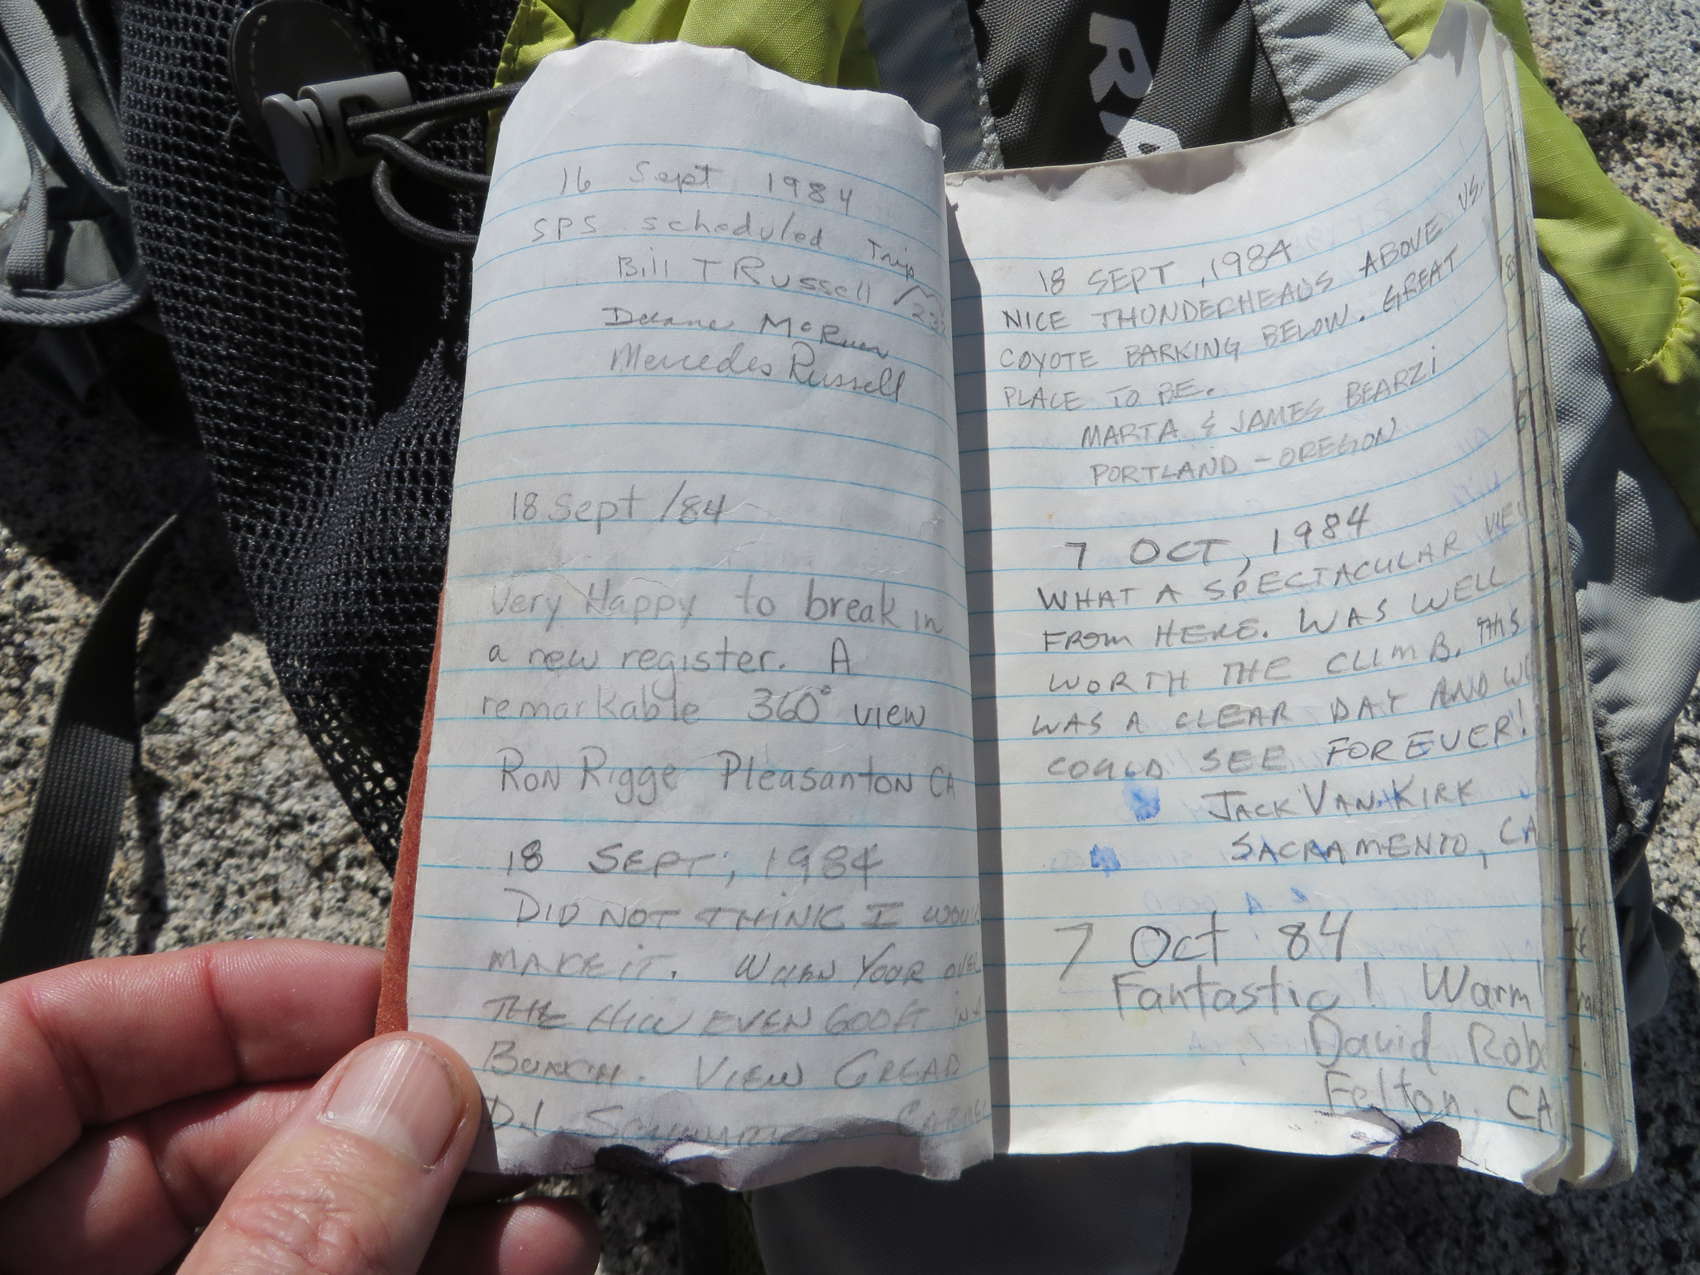 16 Sept 1984
SPS scheduled Trip
Bill T Russell
Duane McRuer
Mercedes Russell
18 Sept /84
Very Happy to break in
a new register. A
remarkable 360° view
Ron Rigge Pleasanton CA
18 SEPT, 1984
DID NOT THINK I WOUL
MAKE IT. WHEN YOUR OVER
THE HILL EVEN 600 FT IN A
BUNCH. VIEW GREAD
D.L.
18 SEPT, 1984
NICE THUNDERHEADS ABOVE US.
COYOTE BARKING BELOW. GREAT
PLACE TO BE.
MARTA & JAMES BEARZI
PORTLAND - OREGON
7 OCT, 1984
WHAT A SPECTACULAR VIEW
FROM HERE. WAS WELL
WORTH THE CLIMB. THIS
WAS A CLEAR DAY AND WE
COULD SEE FOREVER!
JACK VAN KIRK
SACRAMENTO, CA
7 Oct 84
Fantastic! Warm!
David Rob
Felton, CA
RA